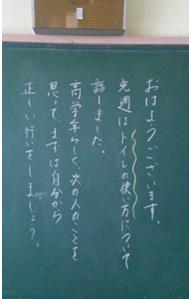 おはようございます。
先週はトイレの使い方について
話しました。
高学年らしく、次の人のことを
思って、まずは自分から
正しい行いをしましょう。